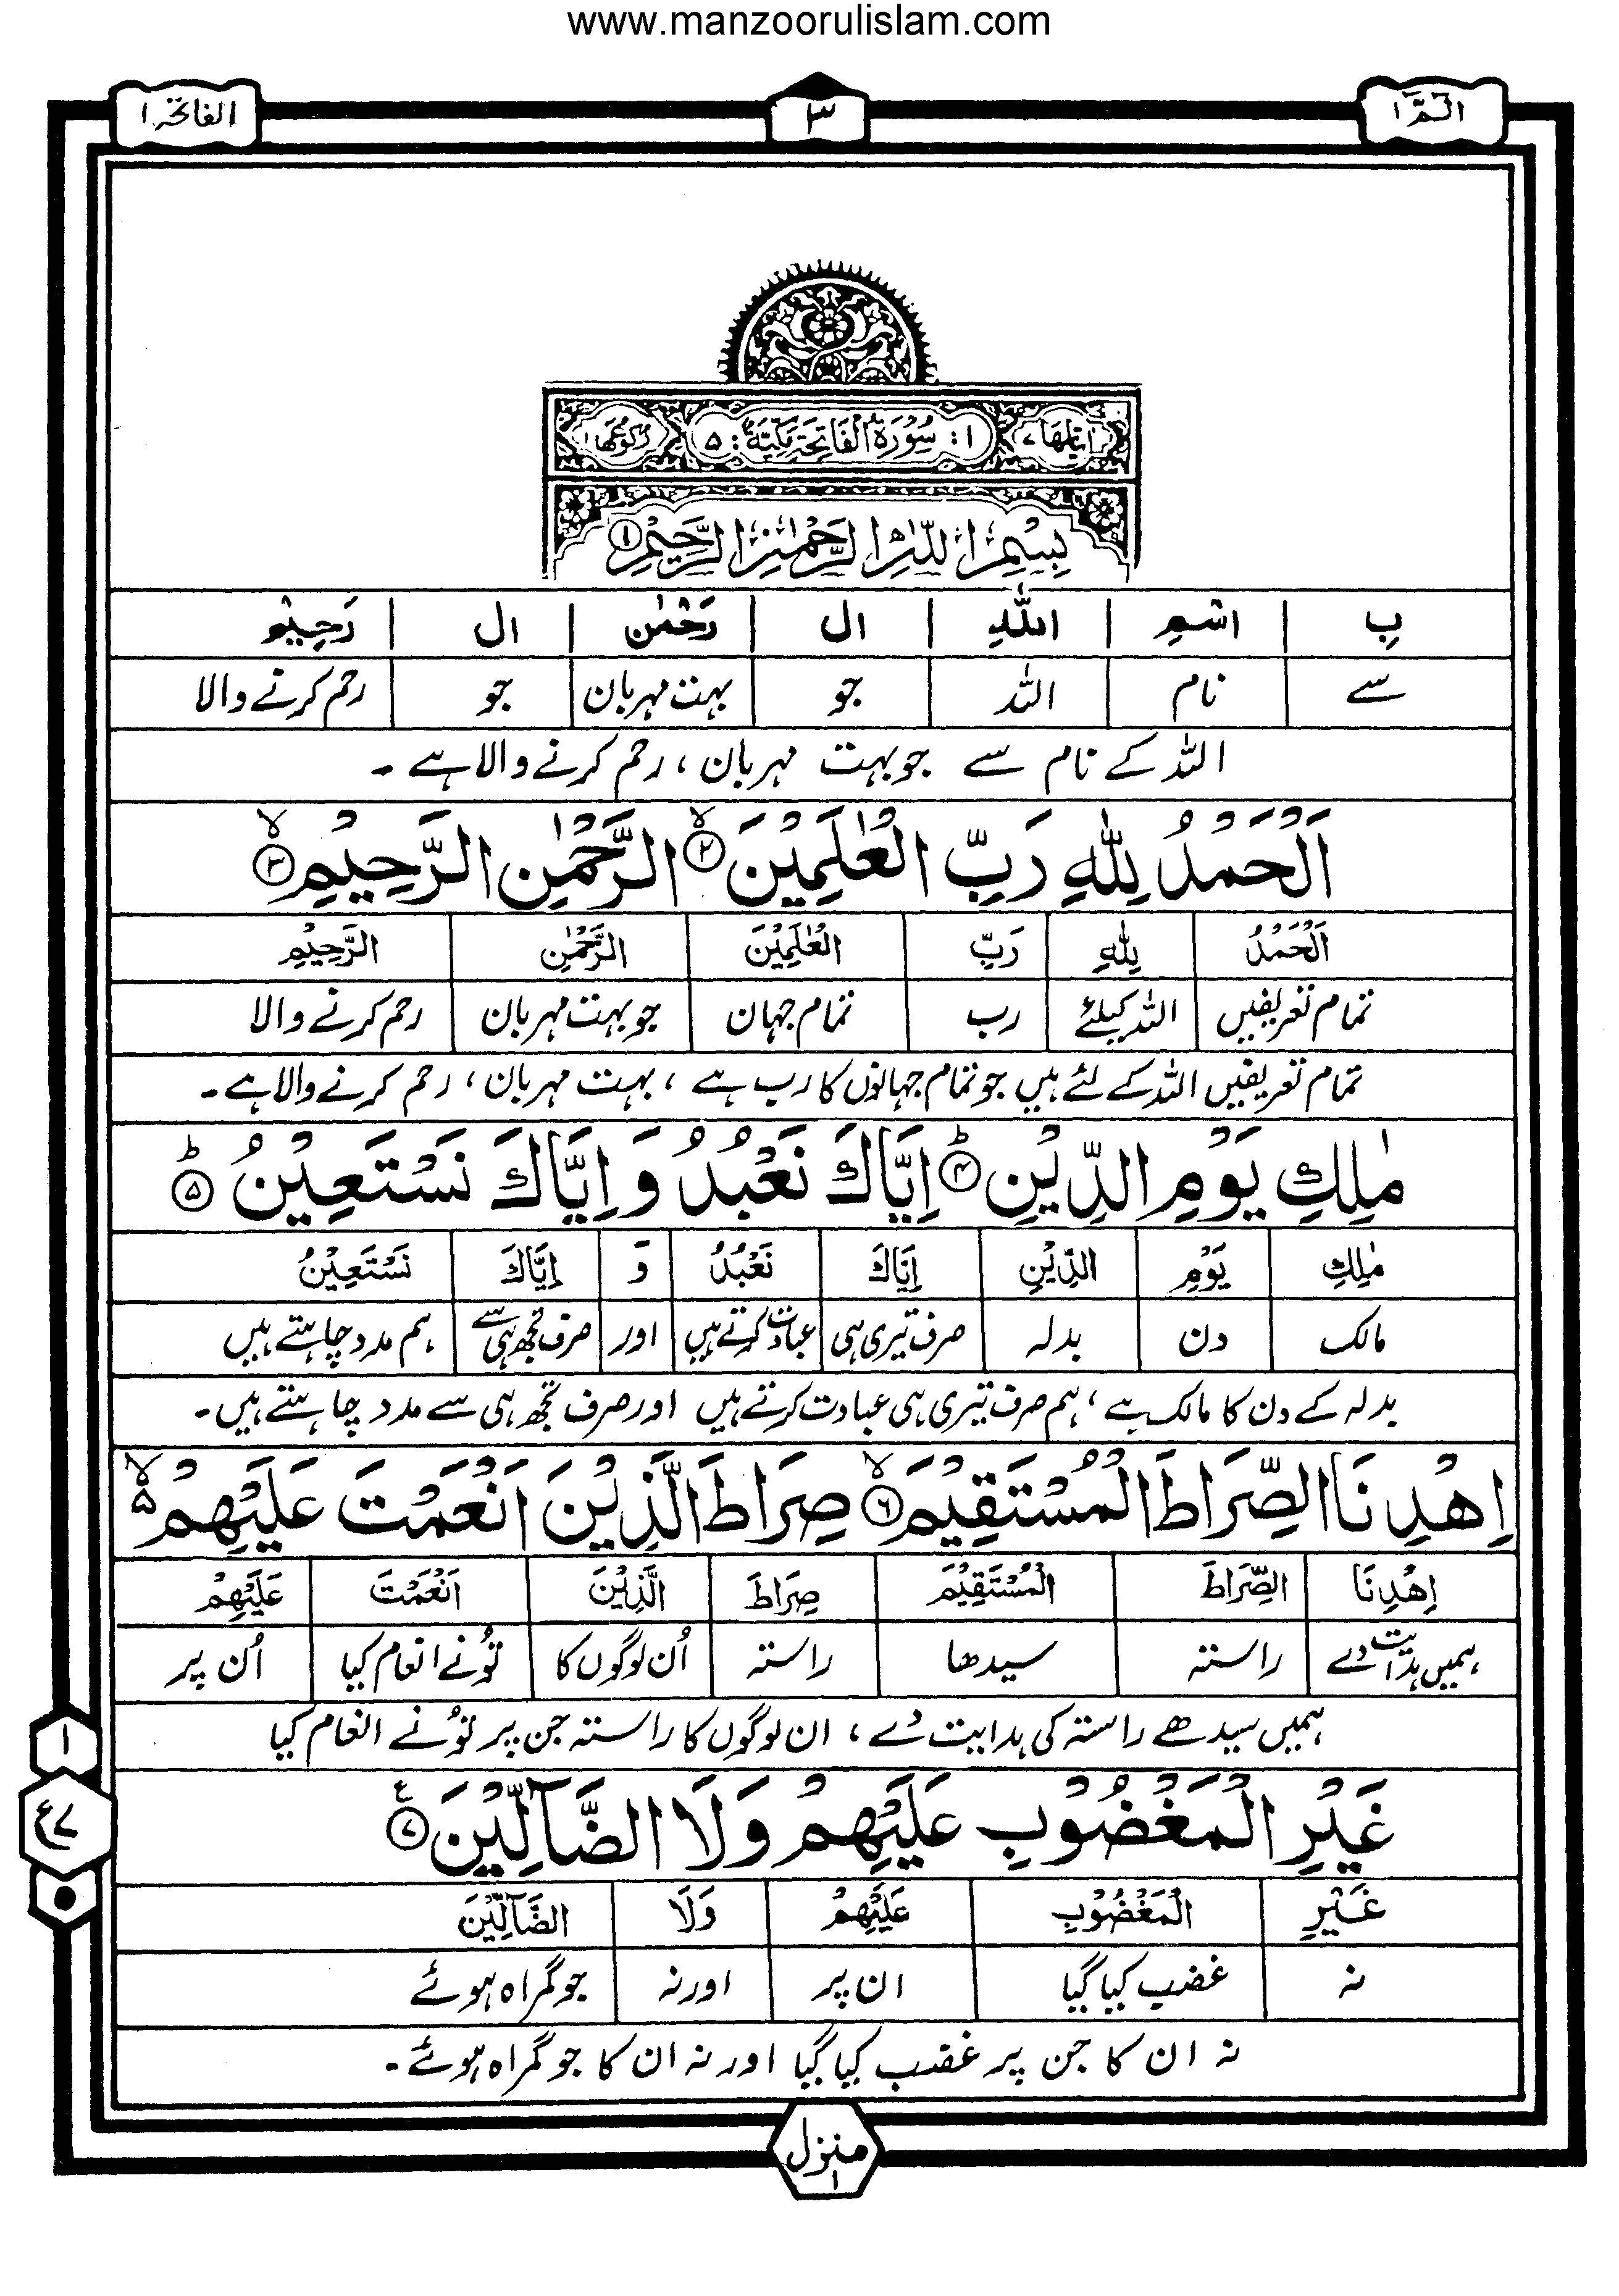 www.manzoorulislam.com
الٓمّٓ ١ ٣ الفاتحۃ ١
اٰیٰاتُھَا ٧ ١: سُوْرَۃُ الْفَاتِحَۃِ مَکِّیَّۃٌ: ٥ رُکُوْعُھَا ١
بِسْمِ اللّٰہِ الرَّحْمٰنِ الرَّحِیْمِ ①
بِ اسْمِ اللّٰہِ ال رَحْمٰن ال رَحِیْم
سے نام اللہ جو بہت مہربان جو رحم کرنے والا
اللہ کے نام سے جو بہت مہربان ، رحم کرنے والا ہے ۔
اَلْحَمْدُ لِلّٰہِ رَبِّ الْعٰلَمِیْنَ ۙ② الرَّحْمٰنِ الرَّحِیْمِ ۙ③
اَلْحَمْدُ لِلّٰہِ رَبِّ الْعٰلَمِیْنَ الرَّحْمٰنِ الرَّحِیْمِ
تمام تعریفیں اللہ کیلئے رب تمام جہان جو بہت مہربان رحم کرنے والا
تمام تعریفیں اللہ کے لئے ہیں جو تمام جہانوں کا رب ہے ، بہت مہربان ، رحم کرنے والا ہے ۔
مٰلِکِ یَوْمِ الدِّیْنِ ؕ④ اِیَّاکَ نَعْبُدُ وَ اِیَّاکَ نَسْتَعِیْنُ ؕ⑤
مٰلِکِ یَوْمِ الدِّیْنِ اِیَّاکَ نَعْبُدُ وَ اِیَّاکَ نَسْتَعِیْنُ
مالک دن بدلہ صرف تیری ہی عبادت کرتے ہیں اور صرف تجھ ہی سے ہم مدد چاہتے ہیں
بدلہ کے دن کا مالک ہے ، ہم صرف تیری ہی عبادت کرتے ہیں اور صرف تجھ ہی سے مدد چاہتے ہیں ۔
اِھْدِنَا الصِّرَاطَ الْمُسْتَقِیْمَ ۙ⑥ صِرَاطَ الَّذِیْنَ اَنْعَمْتَ عَلَیْھِمْ ۙ۵
اِھْدِنَا الصِّرَاطَ الْمُسْتَقِیْمَ صِرَاطَ الَّذِیْنَ اَنْعَمْتَ عَلَیْھِمْ
ہمیں ہدایت دے راستہ سیدھا راستہ اُن لوگوں کا تُونے انعام کیا اُن پر
ہمیں سیدھے راستہ کی ہدایت دے ، ان لوگوں کا راستہ جن پر تُونے انعام کیا
١
غَیْرِ الْمَغْضُوْبِ عَلَیْھِمْ وَلَا الضَّآلِّیْنَ ⑦ع
ع٧
غَیْرِ الْمَغْضُوْبِ عَلَیْھِمْ وَلَا الضَّآلِّیْنَ
نہ غضب کیا گیا ان پر اور نہ جو گمراہ ہوئے
نہ ان کا جن پر غضب کیا گیا اور نہ ان کا جو گمراہ ہوئے ۔
منزل ١